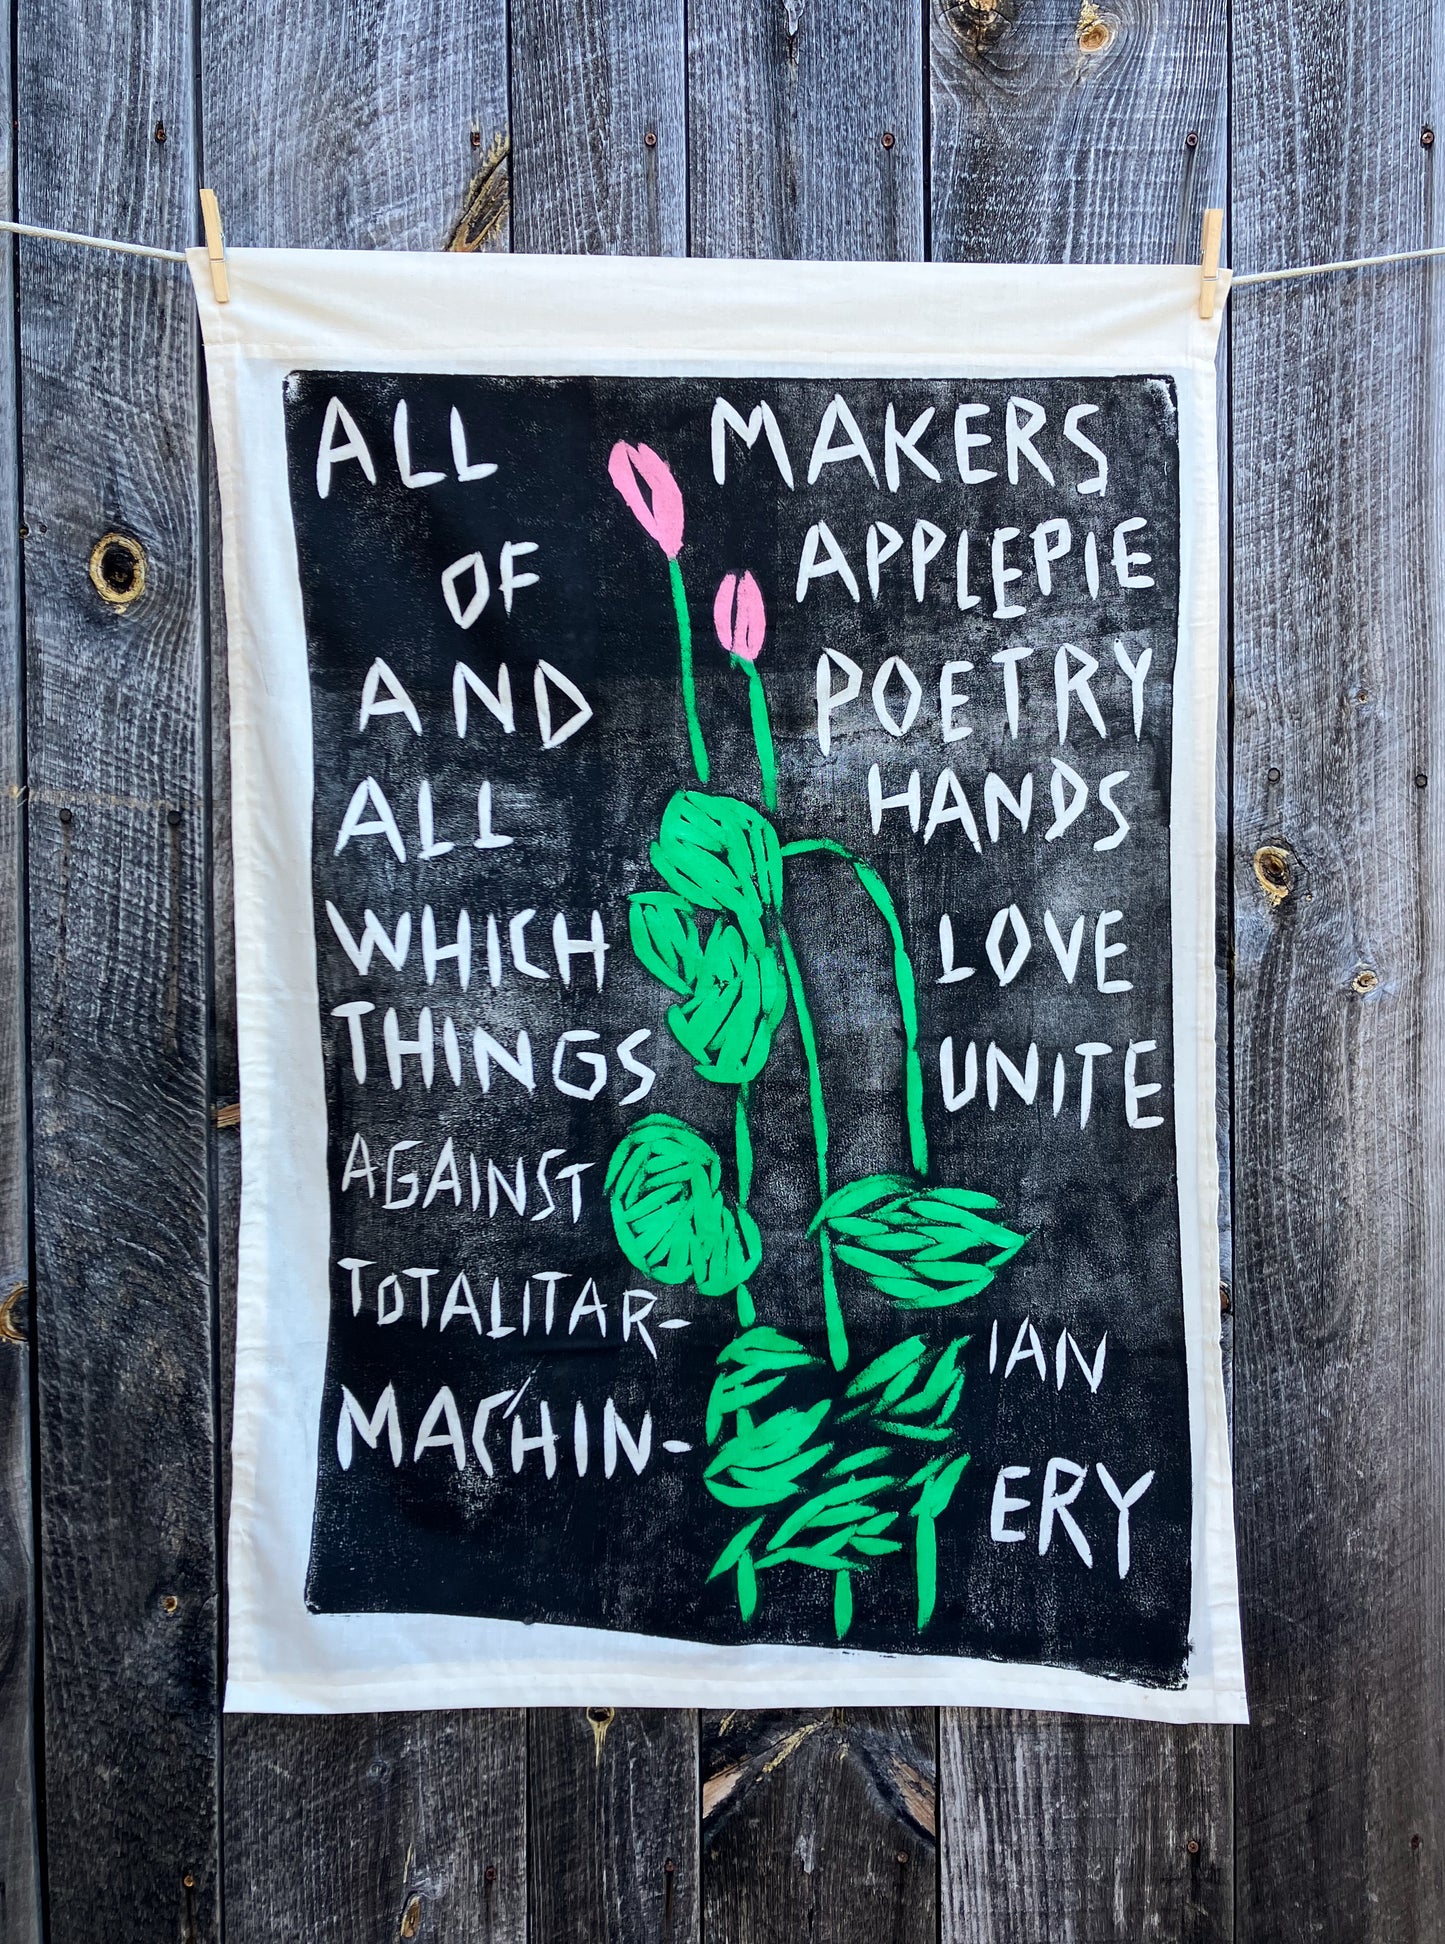 ALL MAKERS
OF APPLEPIE
AND POETRY
ALL HANDS
WHICH LOVE
THINGS UNITE
AGAINST
TOTALITAR-IAN
MACHIN-ERY